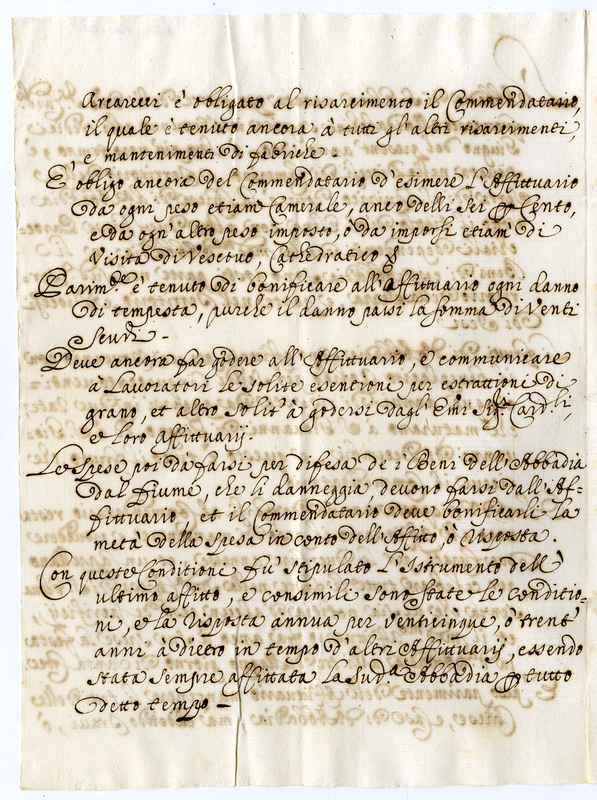 Arcarecci è obligato al risarcimento il Commendatario,
il quale è tenuto ancora à tutti gl'altri risarcimenti,
e mantenimenti di fabriche.
E' obligo ancora del Commendatario d'esimere l'Affittuario
da ogni peso etiam Camerale, anco delli sei p Cento,
e da ogn'altro peso imposto, ò da imporsi etiam di
Visita di Vescovo, Cathedratico &
Parim.te è tenuto di bonificare all'Affittuario ogni danno
di tempesta, purche il danno passi la somma di Venti
scudi -
Deve ancora far godere all'Affittuario, e communicare
a Lavoratori le solite esentioni per estrattioni di
grano, et altro solit'à godersi dagl'Emi Sig.ri Card.li,
e loro Affittuarij.
Le spese poi da farsi per difesa de i Beni dell'Abbadia
dal fiume, che li danneggia, devono farsi dall'Af-
fittuario, et il Commendatario deve bonificarli la
metà della spesa in conto dell'Affitto, ò Risposta.
Con queste Conditioni fù stipulato l'Istrumento dell'
ultimo affitto, e consimili sono state le conditio-
ni, e la Risposta annua per venticinque, ò trent'
anni à dietro in tempo d'altri Affittuarij, essendo
stata sempre affittata la sud.a Abbadia p tutto
detto tempo -